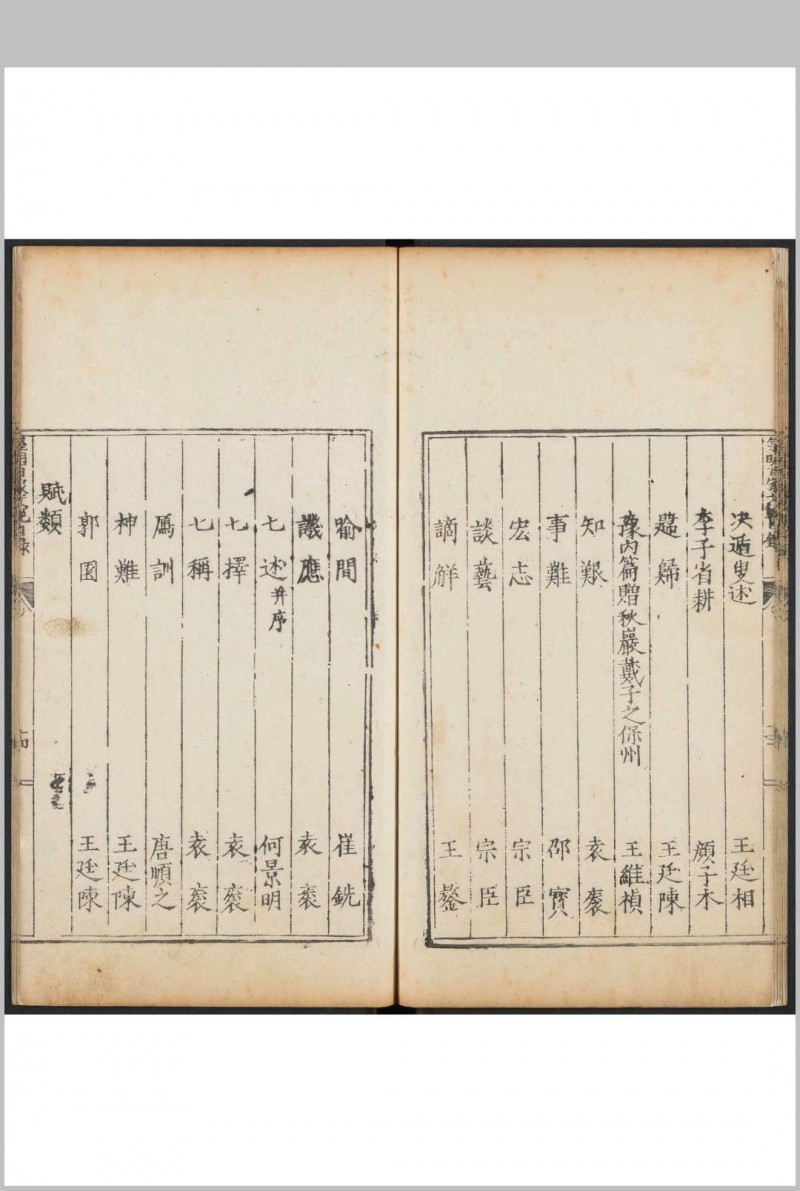 決遁叟述 王廷相
李子省耕 顔子木
題歸 王廷陳
豫內篇贈秋巖戴子之保州 王維楨
知艱 袁袠
事難 邵寶
宏志 宗臣
談藝 宗臣
謫解 王鏊
喻間 崔銑
譏應 袁袠
七述并序 何景明
七擇 袁袠
七稱 袁袠
廣訓 唐順之
神難 王廷陳
郭圄 王廷陳
賦類